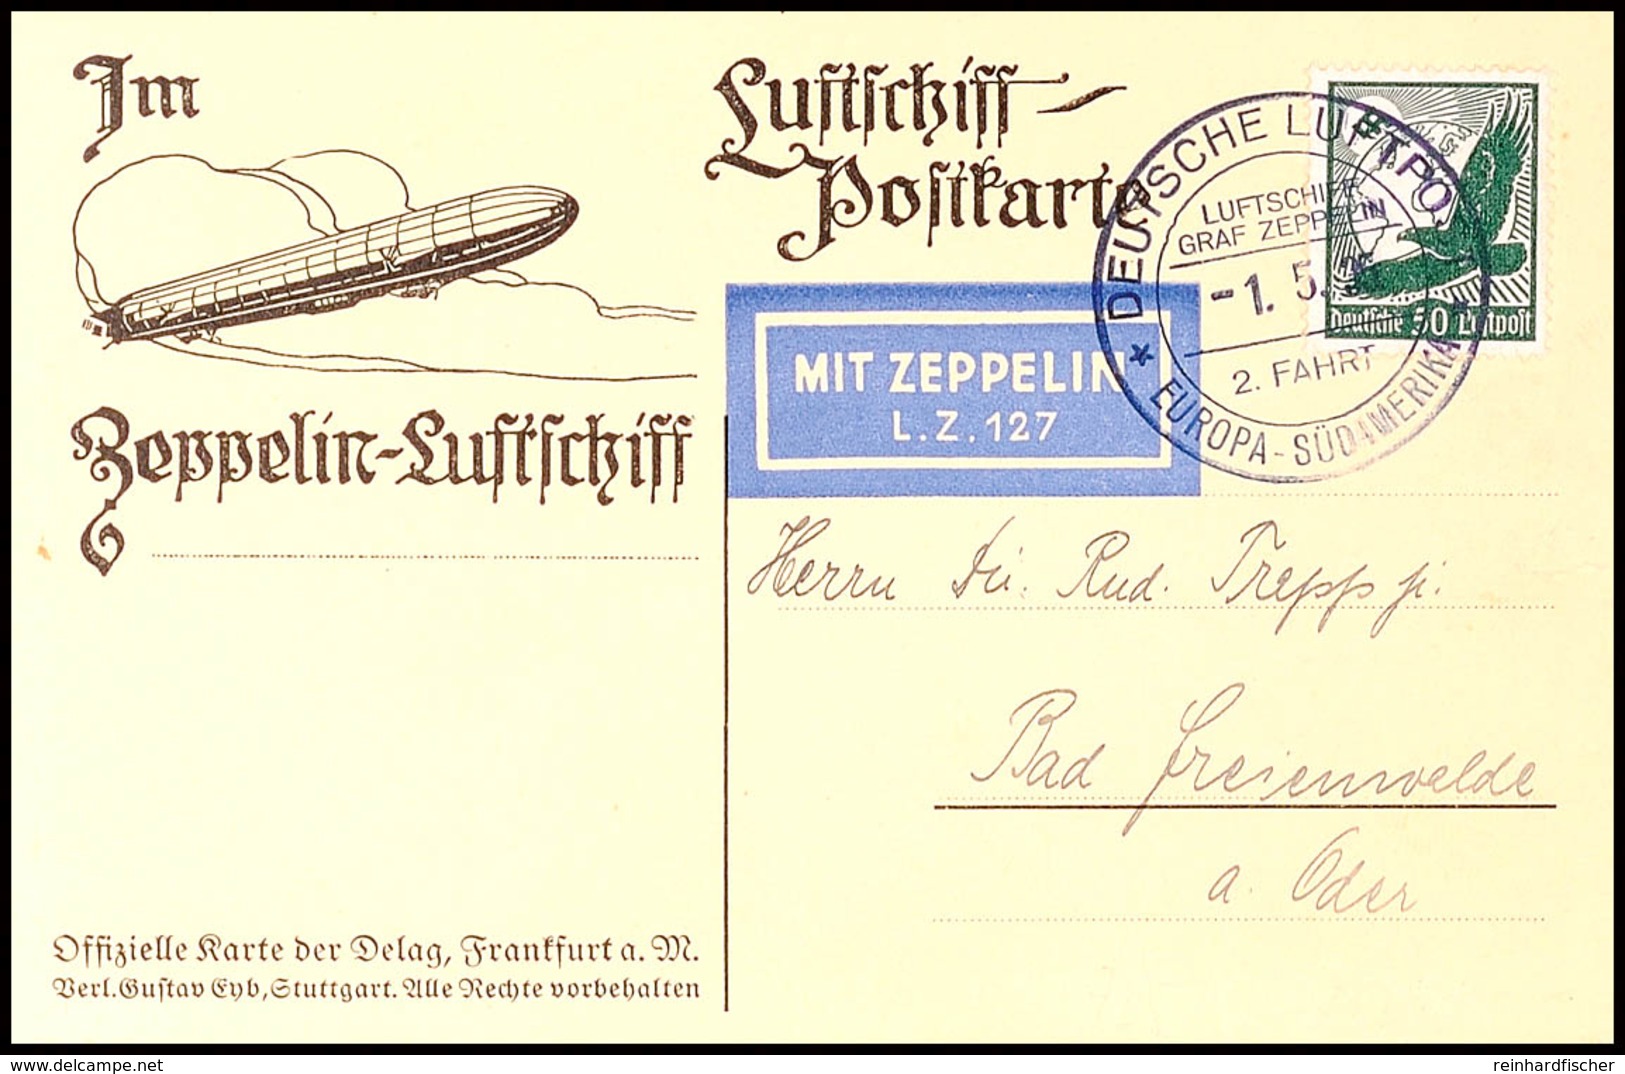 Im
Zeppelin-Luftschiff
Offizielle Karte der Delag, Frankfurt a. M.
Verl. Gustav Eyb, Stuttgart. Alle Rechte vorbehalten
Luftschiff-
Postkarte
MIT ZEPPELIN
L.Z. 127
DEUTSCHE LUFTPO
LUFTSCHIFF
GRAF ZEPPELIN
-1. 5.
2. FAHRT
* EUROPA-SÜDAMERIKA *
Deutsche 50 Luftpost
Herrn Rud. Trepp jr.
Bad Freienwalde
a. Oder
delcampe.net
reinhardfischer